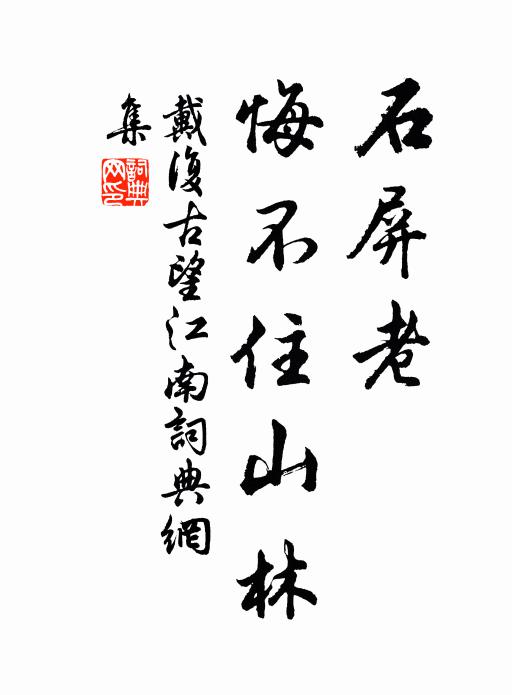 石屏老
悔不住山林
戴復古望江南詞典網
集
詞典網印